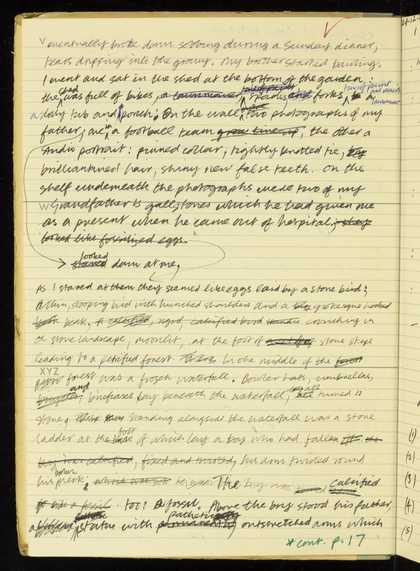 eventually broke down sobbing during a Sunday dinner,
tears dripping into the gravy. My brother started hunting.
I went and sat in the shed at the bottom of the garden:
the shed was full of bikes, spades and forks, a
dolly tub and ponch; On the wall, two photographs of my
father, one a football team, the other a
studio portrait: pinned collar, tightly knotted tie,
brilliantined hair, shiny new false teeth. On the
shelf underneath the photographs were two of my
Grandfather's gallstones which he had given me
as a present when he came out of hospital,
looked like fossilised eggs.
→ looked down at me,
As I stared at them they seemed like eggs laid by a stone bird;
stooping bird with hunched shoulders and a grotesque hooked
beak, rigid, calcified bird crouching in
a stone landscape, moonlit, at the foot of stone steps
leading to a petrified forest. In the middle of the
XYZ forest was a frozen waterfall. Bowler hats, umbrellas,
and briefcases lay beneath the waterfall, all turned to
stone. Standing alongside the waterfall was a stone
ladder at the foot of which lay a boy who had fallen
his arm twisted round
his neck, The boy was calcified
too: A fossil. Above the boy stood his father,
a statue with pathetic outstretched arms which
*cont. p. 17
(1)
(2)
(3)
(4)
(5)